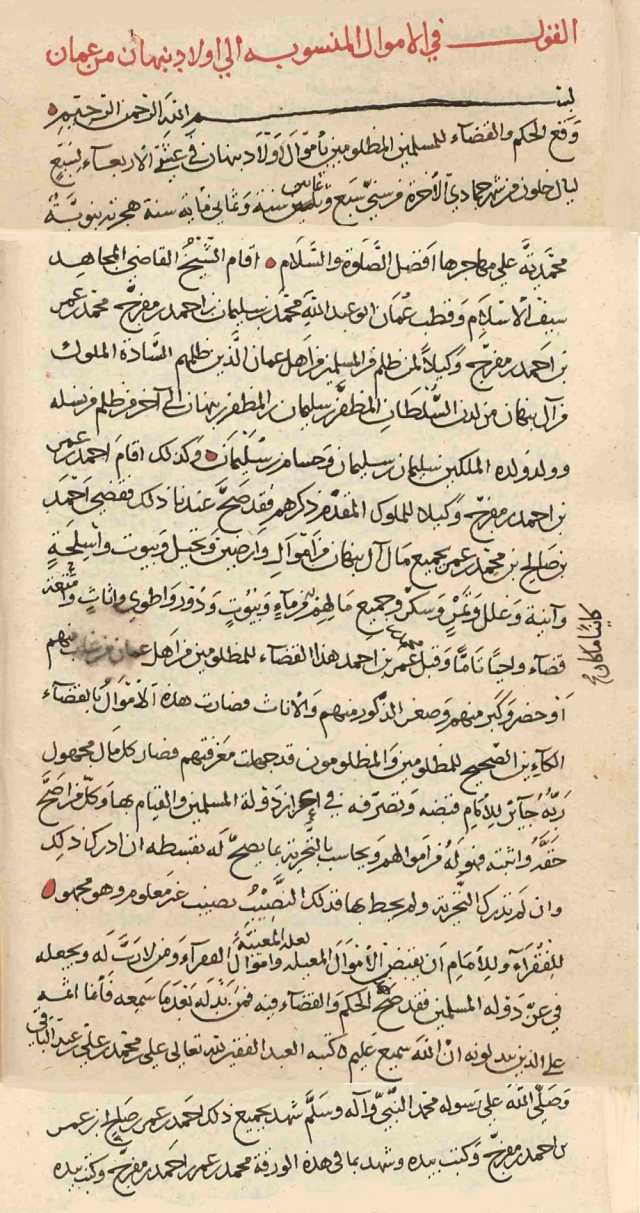 القول في الاموال المنسوبه الي اولاد نبهان من عمان
بسم الله الرحمن الرحيم
وقع الحكم والقضآء للمسلمين المظلومين باموال اولاد نبهان في عشي الاربعآء لسبع
ليال خلون من شهر جمادي الاخرة من سني سبع وثمانين سنة وثماني مايه سنة هجرته نبويّة
محمّديّة علي مهاجرها افضل الصّلوة والسّلام اقام الشّيخ القاضي المجاهد
سيف الاسلام وقطب عُمان ابو عبدالله محمّد بن سليمان بن احمد بن مفرجّ محمّد بن عمر
بن احمد بن مفرجّ وكيلاً لمن ظلم من المسلمين من اهل عمان الّذين ظلمهم السّادة الملوك
من آل نبهان من لدن السّلطان المظفّر بن سليمان بن المظفر بن نبهان الي آخر من ظلم من نسله
وولد ولده الملكين سليمان بن سليمان وحسام بن سليمان وكذلك اقام احمد بن عمر
بن احمد بن مفرجّ وكيلا للملوك المقدّم ذكرهم فقد صحّ عندنا ذلك فقضي احمد
بن صالح بن محمّد بن عمر بجميع مال آل نبهان من اموال وارضين ونخيل وبيوت واسلحة
وآنية وغلل وتمر وسكر وجميع مالهم من مآء وبيوت ودور واطوي واثاث وامتعة
كاينا ما كان
قضآء واجبًا تامًّا وقبل محمد بن عمر بن احمد هذا القضآء للمظلومين من اهل عمان من غاب منهم
او حضر وكبر منهم وصغر الذكور منهم والاناث فصارت هذه الاموال بالقضآء
الكآين الصّحيح للمظلومين والمظلومون قد جهلت معرفتهم فصار كل مال مجهول
ربّه جآئز للامام قبضه وتصرّفه في اعزاز دولة المسلمين والقيام بها وكلّ من اصحّ
حقّه واثبته فهو له من اموالهم ويحاسب بالتّجزية بما يصحّ له بقسطه ان ادرك ذلك
وان لم تدرك التّجزية ولم يحط بها فذلك النّصيب نصيب غير معلوم وهو مجهول
لعله المغنية
للفقرآء وللامام ان يقبض الاموال المغيله واموال الفقرآء ومن لا ربّ له ويجعله
في عزّ دوله المسلمين فقد صحّ الحكم والقضآء فيه فمن بدّله بعدما سمعه فانما اثمه
علي الذين يبدلونه ان الله سميع عليم كتبه العبد الفقير لله تعالي علي بن محمّد بن علي بن عبد الباقي
وصلّي الله علي رسوله محمّد النّبيّ وآله وسلّم شهد بجميع ذلك احمد بن عمر صالح بن عمر
بن احمد بن مفرجّ وكتب بيده وشهد بما في هذه الورقة محمد بن عمر بن احمد بن مفرجّ وكتب بيده